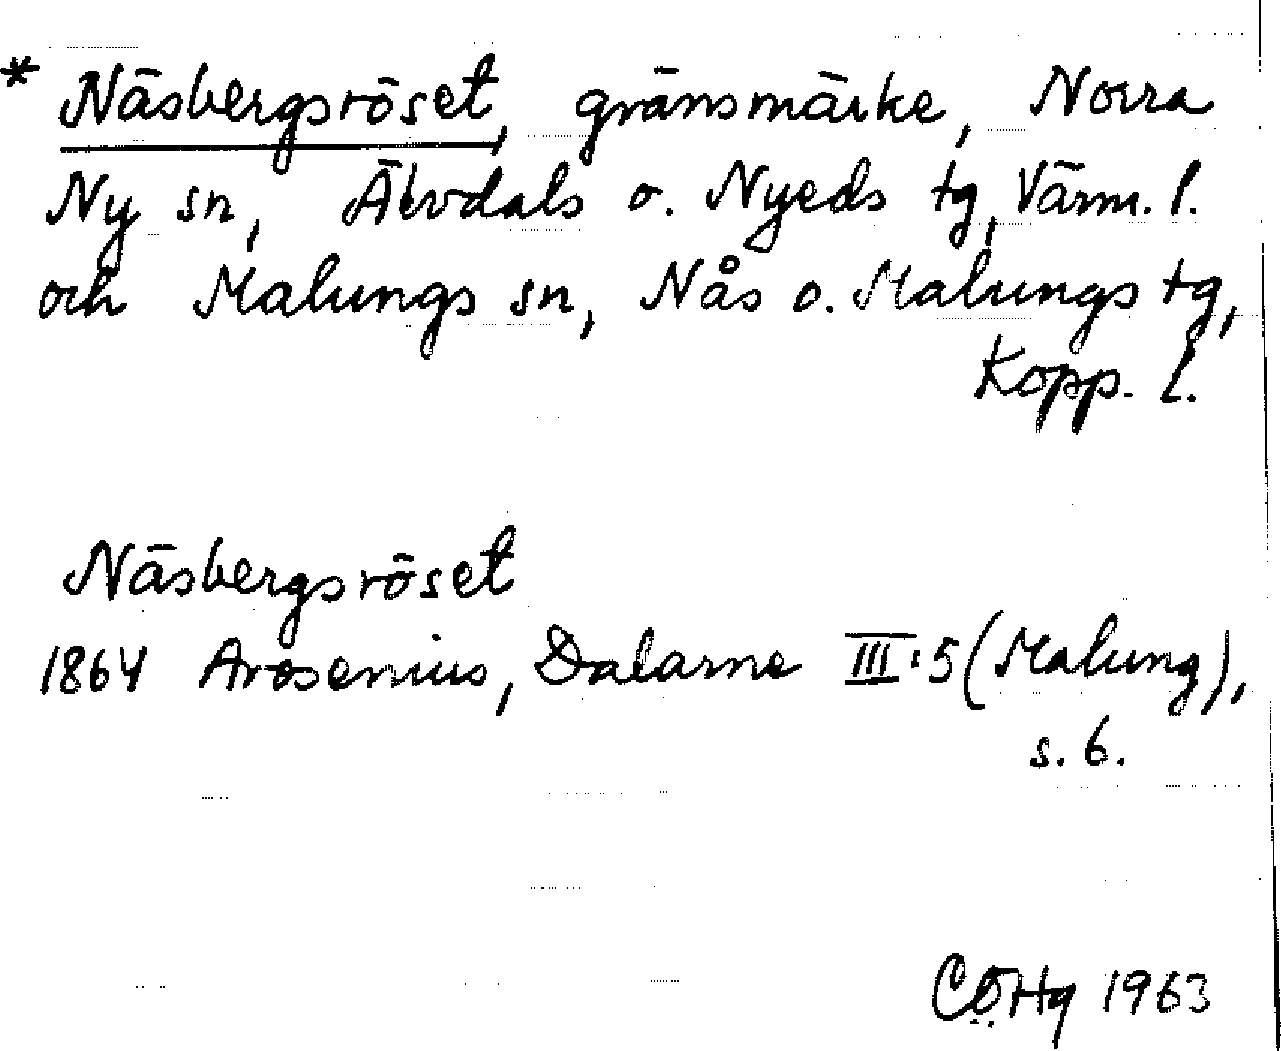 * Näsbergsröset, gränsmärke, Norra
Ny sn, Älvdals o. Nyeds tg, Värm. l.
och Malungs sn, Nås o. Malungs tg,
Kopp. l.
Näsbergsröset
1864 Arosenius, Dalarne III:5 (Malung),
s. 6.
CÖHg 1963